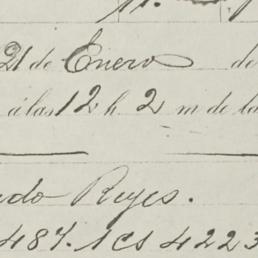 21 de Enero de
á las 12 h 2 m de la
do Reyes.
487. 1 CS 4223